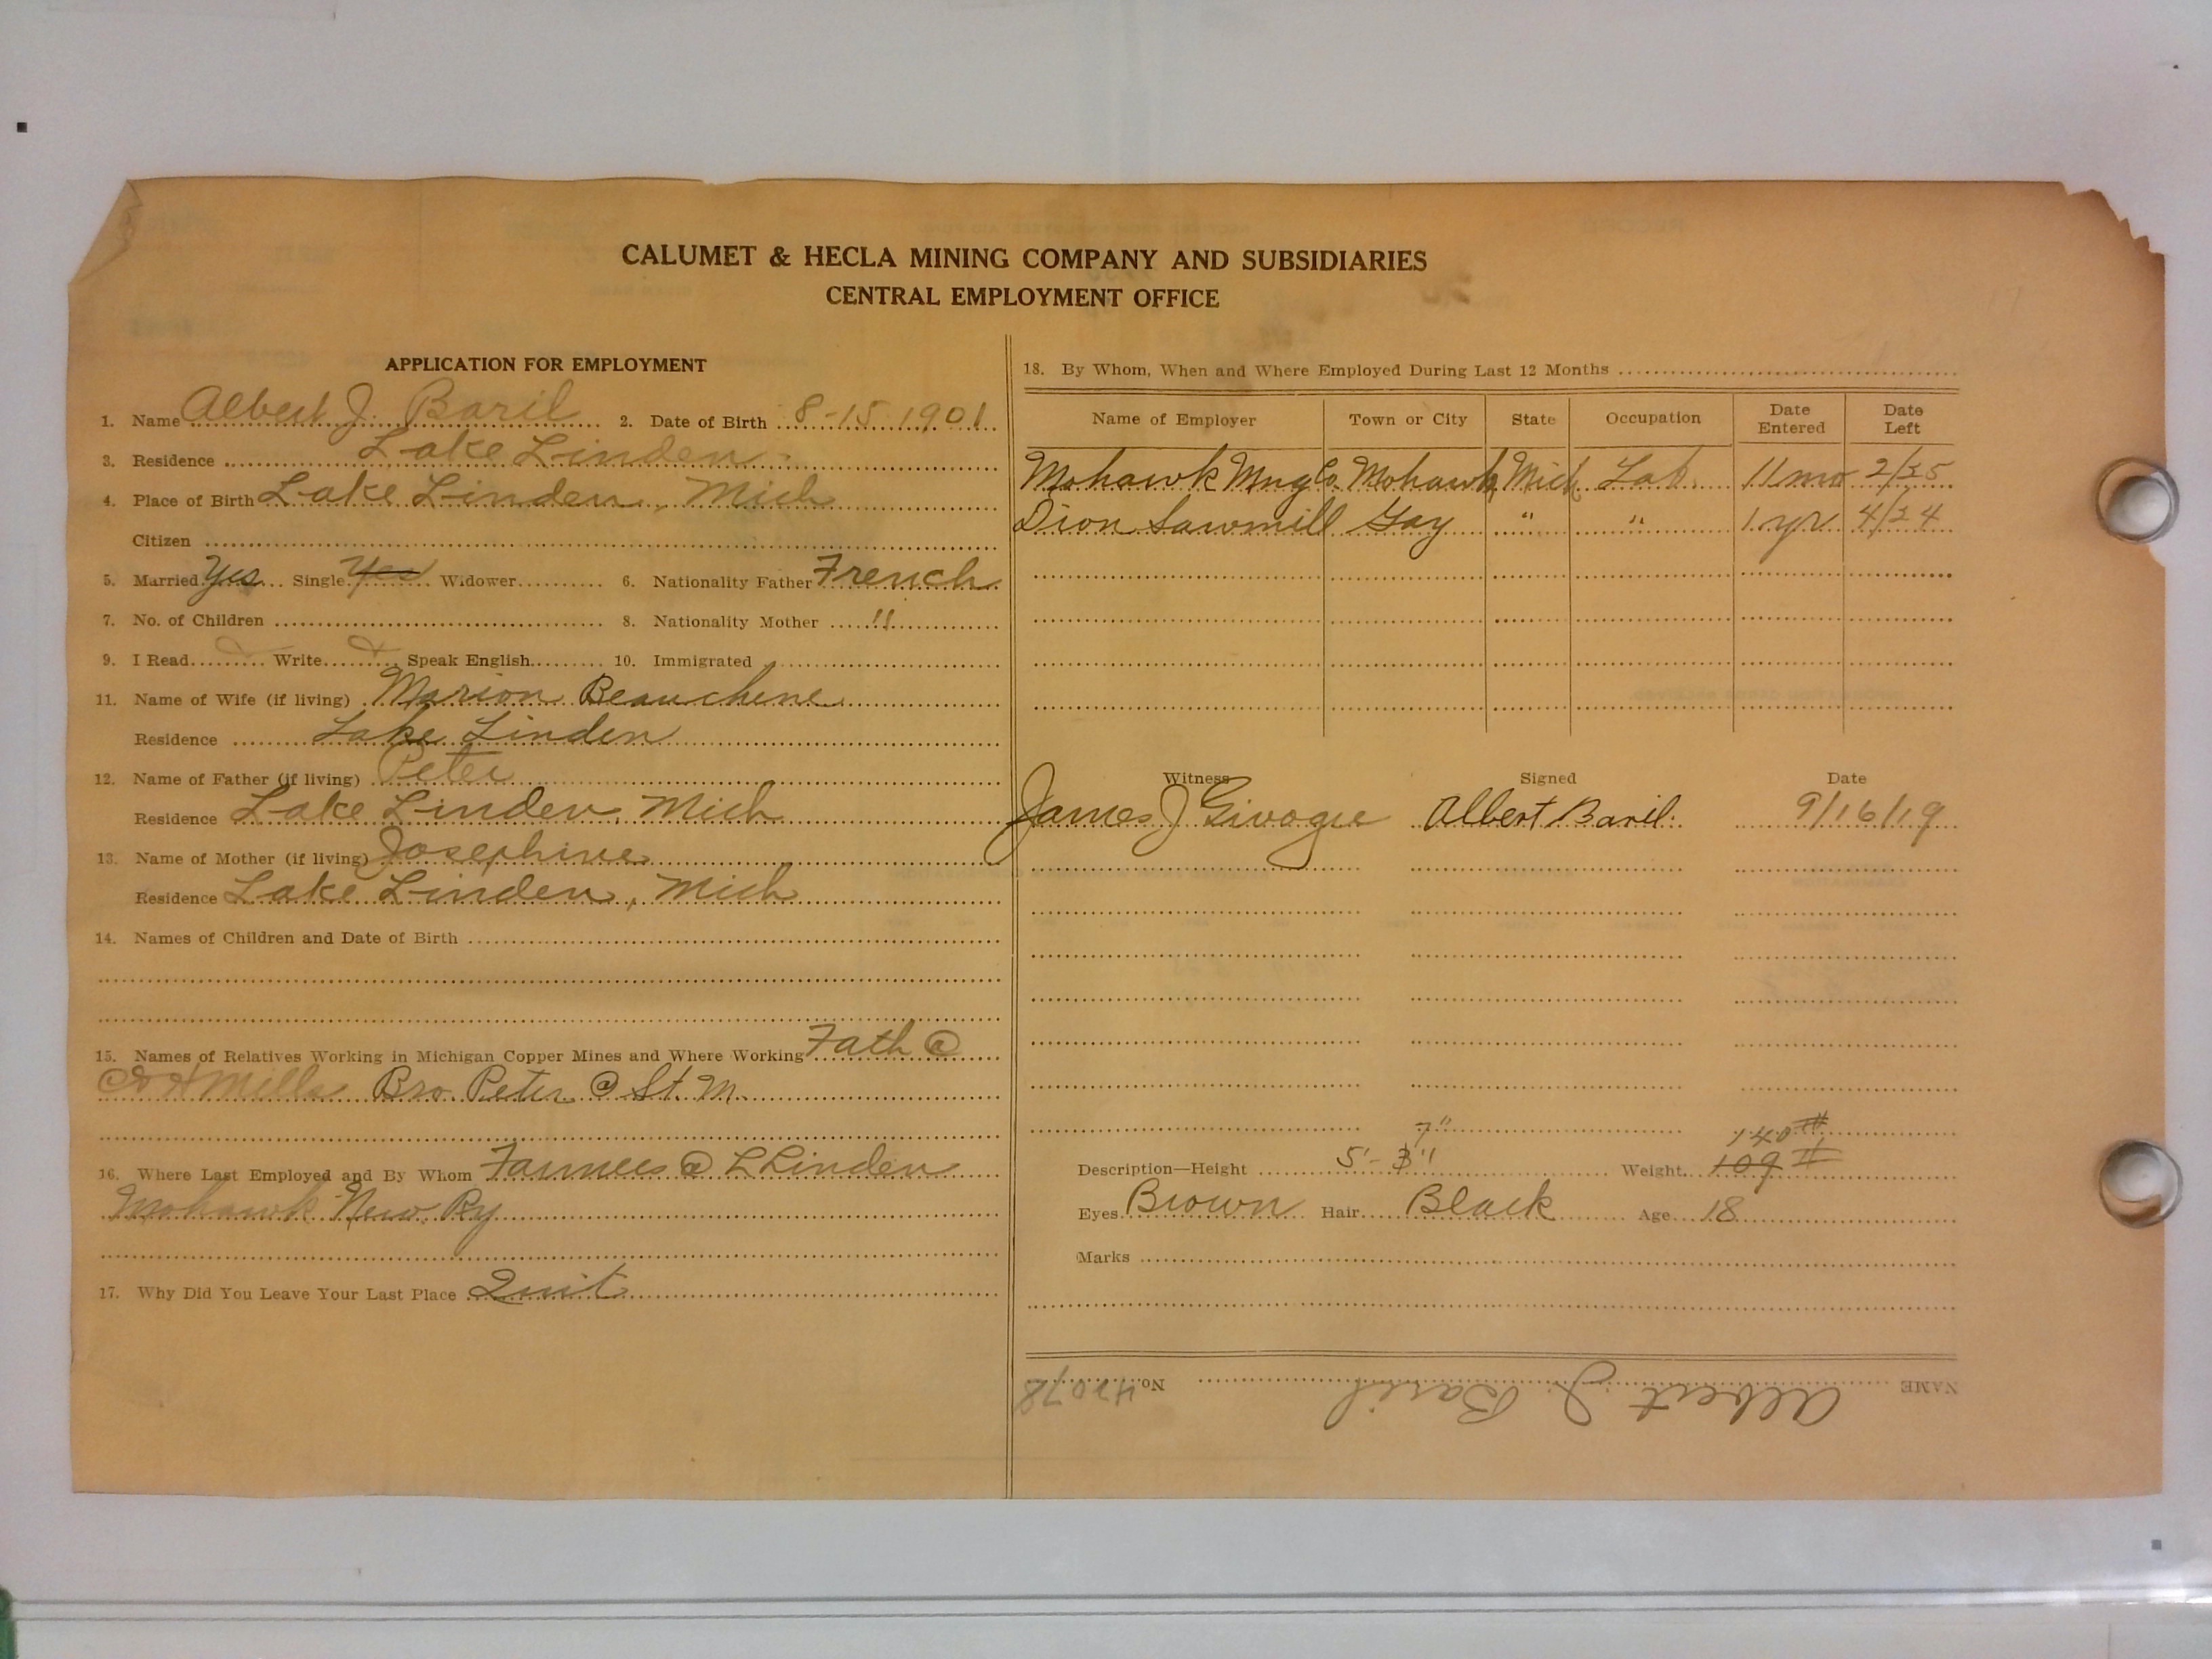 CALUMET & HECLA MINING COMPANY AND SUBSIDIARIES
CENTRAL EMPLOYMENT OFFICE
APPLICATION FOR EMPLOYMENT
1. Name Albert J. Baril 2. Date of Birth 8-15 1901
3. Residence Lake Linden
4. Place of Birth Lake Linden, Mich
Citizen
5. Married Yes Single Yes Widower 6. Nationality Father French
7. No. of Children 8. Nationality Mother "
9. I Read Write Speak English 10. Immigrated
11. Name of Wife (if living) Marion Beauchene
Residence Lake Linden
12. Name of Father (if living) Peter
Residence Lake Linden, Mich
13. Name of Mother (if living) Josephine
Residence Lake Linden, Mich
14. Names of Children and Date of Birth
15. Names of Relatives Working in Michigan Copper Mines and Where Working Fath @
C & H Mills Bro. Peter @ St. M.
16. Where Last Employed and By Whom @ L Linden
Mohawk New Ry
17. Why Did You Leave Your Last Place Quit
18. By Whom, When and Where Employed During Last 12 Months
Name of Employer Town or City State Occupation Date Entered Date Left
Mohawk Mng Co. Mohawk Mich Lab. 11 mo 2/25
Dion Sawmill Gay " " 1 yr 4/24
Witness Signed Date
James J Albert Baril. 9/16/19
7" 140#
Description—Height 5'-3" Weight 109#
Eyes Brown Hair Black Age 18
Marks
NAME Albert J. Baril No. 42078